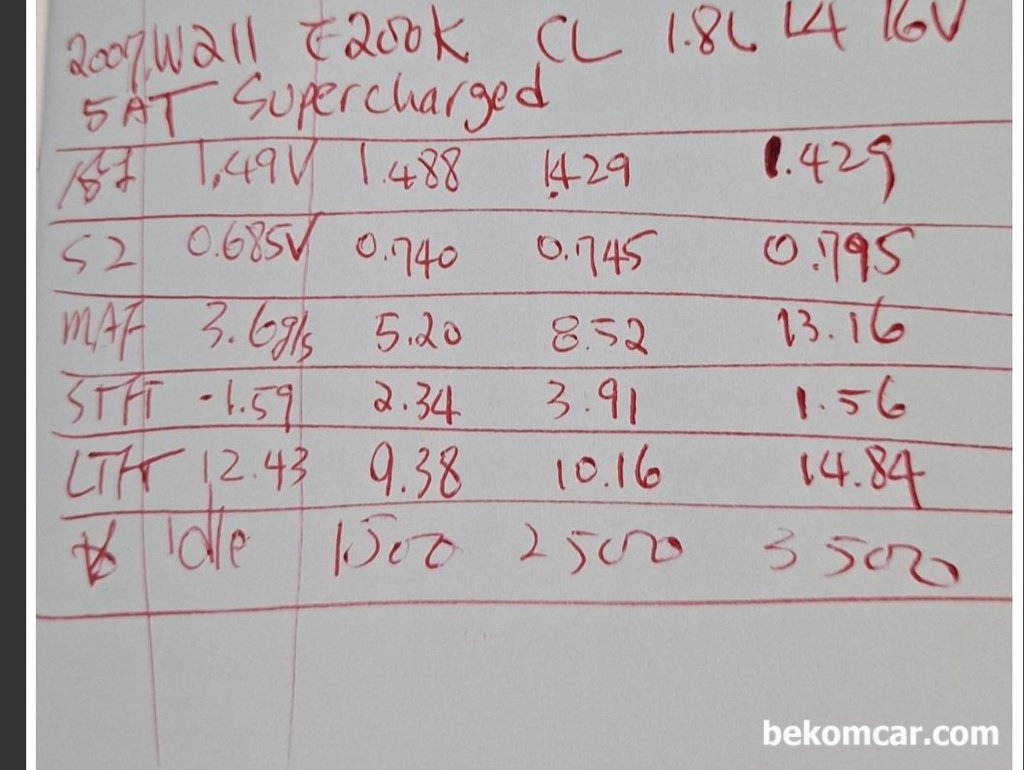 2007 W211 E200K CL 1.8L L4 16V
5AT Supercharged
1.49V 1.488 1.429 1.429
S2 0.685V 0.740 0.745 0.795
MAF 3.6g/s 5.20 8.52 13.16
STFT -1.59 2.34 3.91 1.56
LTFT 12.43 9.38 10.16 14.84
Idle 1500 2500 3500
bekomcar.com